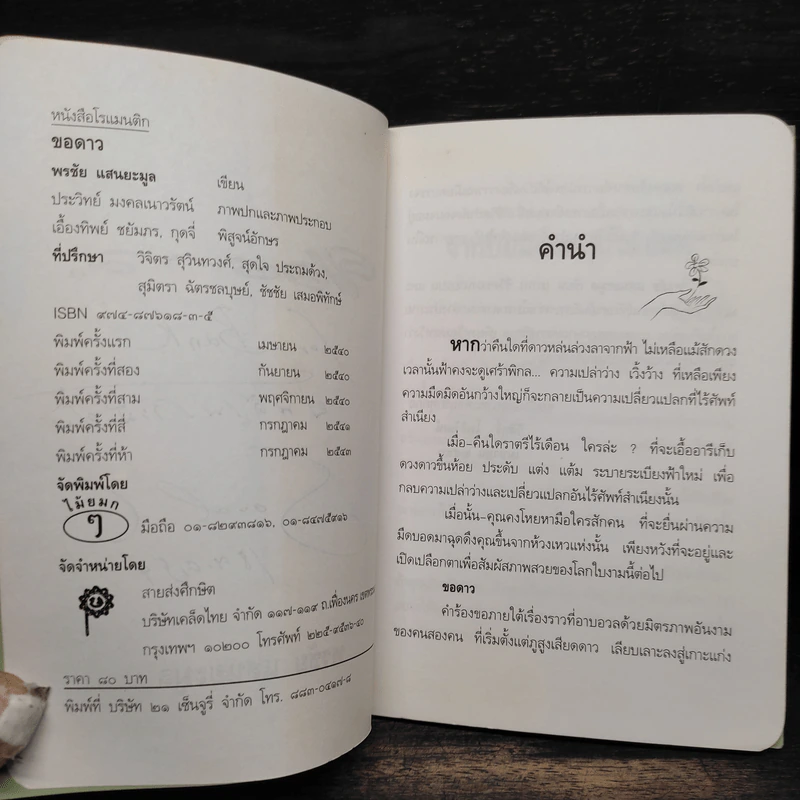 หนังสือโรแมนติก
ขอดาว
พรชัย แสนยะมูล เขียน
ประวิทย์ มงคลเนาวรัตน์ ภาพปกและภาพประกอบ
เอื้องทิพย์ ชยัมภร, กุดจี่ พิสูจน์อักษร
ที่ปรึกษา วิจิตร สุวินทวงศ์, สุดใจ ประถมด้วง,
สุมิตรา ฉัตรชลบุษย์, ชัชชัย เสมอพิทักษ์
ISBN ๙๗๔-๘๗๖๑๘-๓-๕
พิมพ์ครั้งแรก เมษายน ๒๕๔๐
พิมพ์ครั้งที่สอง กันยายน ๒๕๔๐
พิมพ์ครั้งที่สาม พฤศจิกายน ๒๕๔๐
พิมพ์ครั้งที่สี่ กรกฎาคม ๒๕๔๑
พิมพ์ครั้งที่ห้า กรกฎาคม ๒๕๔๓
จัดพิมพ์โดย
ไม้ยมก
ๆ มือถือ ๐๑-๘๒๙๓๘๑๖, ๐๑-๘๔๗๕๙๑๖
จัดจำหน่ายโดย
สายส่งศึกษิต
บริษัทเคล็ดไทย จำกัด ๑๑๗-๑๑๙ ถ.เฟื่องนคร
กรุงเทพฯ ๑๐๒๐๐ โทรศัพท์ ๒๒๕-๙๕๓๖-๔๐
ราคา ๘๐ บาท
พิมพ์ที่ บริษัท ๒๑ เซ็นจูรี่ จำกัด โทร. ๘๘๓-๐๔๑๗-๘
คำนำ
หากว่าคืนใดที่ดาวหล่นล่วงลาจากฟ้า ไม่เหลือแม้สักดวง
เวลานั้นฟ้าคงจะดูเศร้าพิกล... ความเปล่าว่าง เวิ้งว้าง ที่เหลือเพียง
ความมืดมิดอันกว้างใหญ่ก็จะกลายเป็นความเปลี่ยวแปลกที่ไร้ศัพท์
สำเนียง
เมื่อ-คืนใดราตรีไร้เดือน ใครล่ะ ? ที่จะเอื้ออารีเก็บ
ดวงดาวขึ้นห้อย ประดับ แต่ง แต้ม ระบายระเบียงฟ้าใหม่ เพื่อ
กลบความเปล่าว่างและเปลี่ยวแปลกอันไร้ศัพท์สำเนียงนั้น
เมื่อนั้น-คุณคงโหยหามือใครสักคน ที่จะยื่นผ่านความ
มืดบอดมาฉุดดึงคุณขึ้นจากห้วงเหวแห่งนั้น เพียงหวังที่จะอยู่และ
เปิดเปลือกตาเพื่อสัมผัสภาพสวยของโลกใบงามนี้ต่อไป
ขอดาว
คำร้องขอภายใต้เรื่องราวที่อาบอวลด้วยมิตรภาพอันงาม
ของคนสองคน ที่เริ่มตั้งแต่ภูสูงเสียดดาว เลียบเลาะลงสู่เกาะแก่ง